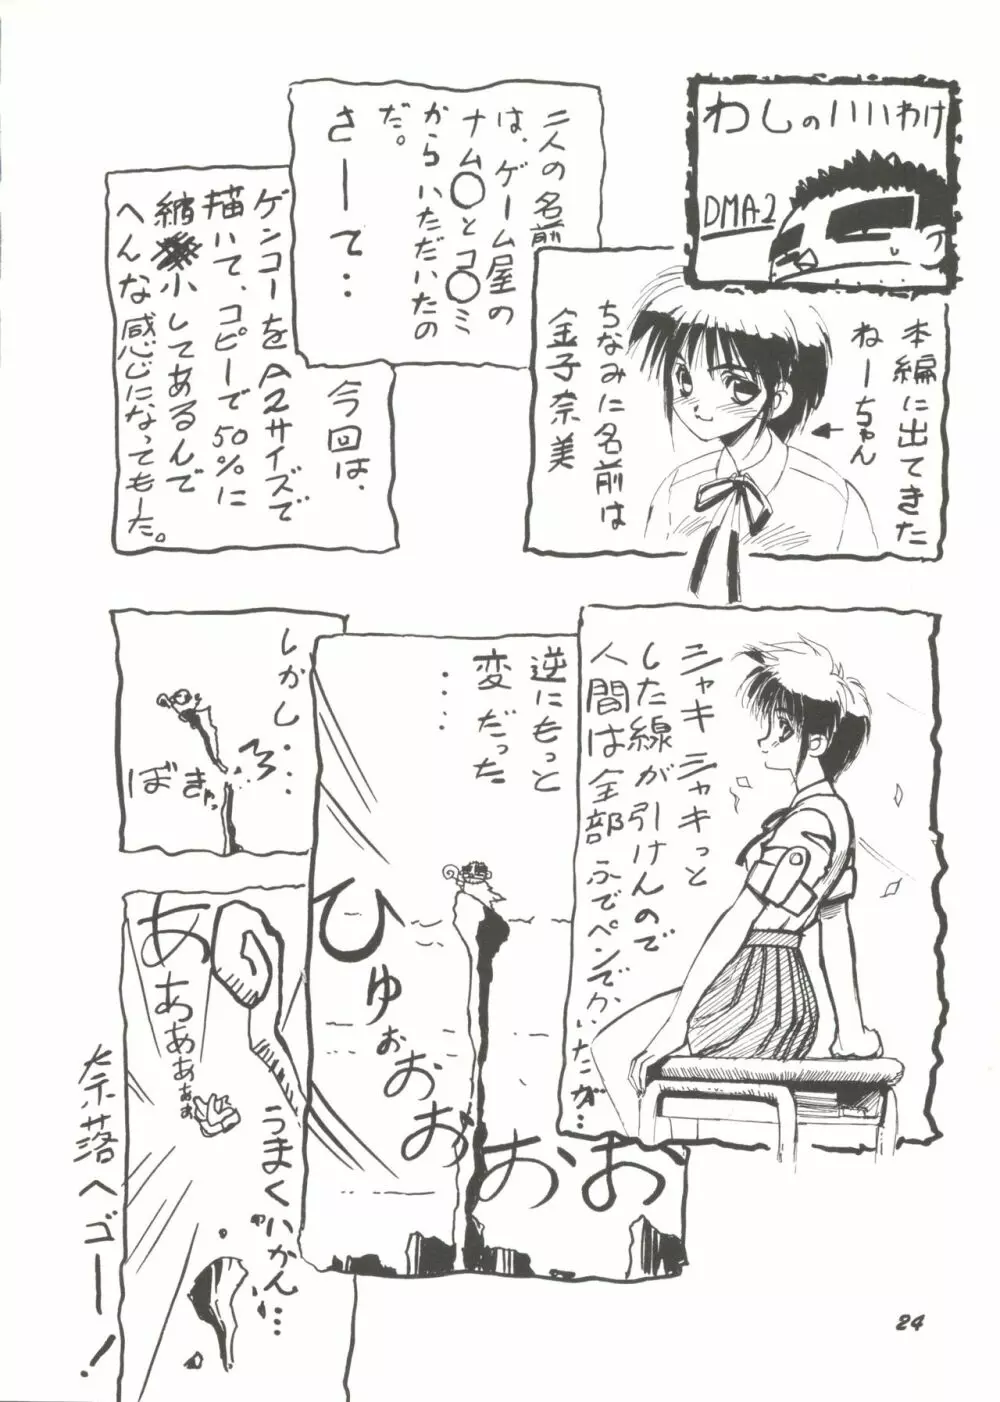 わしのいいわけ
DMA2
本編に出てきた
ねーちゃん
ちなみに名前は
金子奈美
二人の名前
は、ゲーム屋の
ナム○とコ○ミ
からいただいたの
だ。
さーて‥
今回は、
ゲンコーをA2サイズで
描いて、コピーで50%に
縮小してあるんで
へんな感じになってもーた。
シャキシャキっと
した線が引けんので
人間は全部ふでペンでかいたが…
逆にもっと
変だった
‥‥
ひゅぉおおおお
しかし・・・
ぼきゃっ
あああああぁぁ
うまくいかん…
奈落へゴー!
24